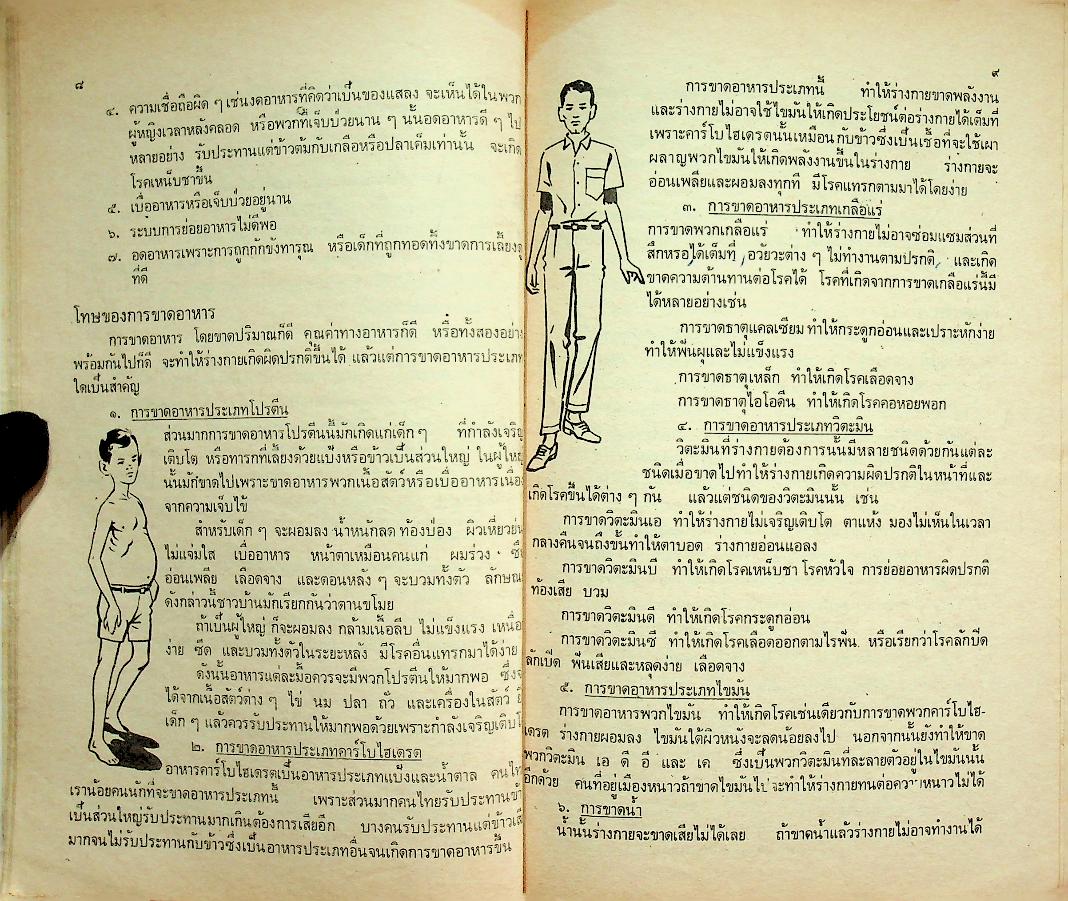 ๘
๔. ความเชื่อถือผิด ๆ เช่นงดอาหารที่คิดว่าเป็นของแสลง จะเห็นได้ในพวก
ผู้หญิงเวลาหลังคลอด หรือพวกที่เจ็บป่วยนาน ๆ นั้นอดอาหารดี ๆ ไป
หลายอย่าง รับประทานแต่ข้าวต้มกับเกลือหรือปลาเค็มเท่านั้น จะเกิด
โรคเหน็บชาขึ้น
๕. เบื่ออาหารหรือเจ็บป่วยอยู่นาน
๖. ระบบการย่อยอาหารไม่ดีพอ
๗. อดอาหารเพราะการถูกกักขังทารุณ หรือเด็กที่ถูกทอดทิ้งขาดการเลี้ยงดู
ที่ดี
โทษของการขาดอาหาร
การขาดอาหาร โดยขาดปริมาณก็ดี คุณค่าทางอาหารก็ดี หรือทั้งสองอย่าง
พร้อมกันไปก็ดี จะทำให้ร่างกายเกิดผิดปรกติขึ้นได้ แล้วแต่การขาดอาหารประเภท
ใดเป็นสำคัญ
๑. การขาดอาหารประเภทโปรตีน
ส่วนมากการขาดอาหารโปรตีนนี้มักเกิดแก่เด็ก ๆ ที่กำลังเจริญ
เติบโต หรือทารกที่เลี้ยงด้วยแป้งหรือข้าวเป็นส่วนใหญ่ ในผู้ใหญ่
นั้นมักขาดไปเพราะขาดอาหารพวกเนื้อสัตว์หรือเบื่ออาหารเนื่อง
จากความเจ็บไข้
สำหรับเด็ก ๆ จะผอมลง น้ำหนักลด ท้องป่อง ผิวเหี่ยวย่น
ไม่แจ่มใส เบื่ออาหาร หน้าตาเหมือนคนแก่ ผมร่วง ซึม
อ่อนเพลีย เลือดจาง และตอนหลัง ๆ จะบวมทั้งตัว ลักษณะ
ดังกล่าวนี้ชาวบ้านมักเรียกกันว่าตานขโมย
ถ้าเป็นผู้ใหญ่ ก็จะผอมลง กล้ามเนื้อลีบ ไม่แข็งแรง เหนื่อย
ง่าย ซีด และบวมทั้งตัวในระยะหลัง มีโรคอื่นแทรกมาได้ง่าย
ดังนั้นอาหารแต่ละมื้อควรจะมีพวกโปรตีนให้มากพอ ซึ่ง
ได้จากเนื้อสัตว์ต่าง ๆ ไข่ นม ปลา ถั่ว และเครื่องในสัตว์
เด็ก ๆ แล้วควรรับประทานให้มากพอด้วยเพราะกำลังเจริญเติบโต
๒. การขาดอาหารประเภทคาร์โบไฮเดรต
อาหารคาร์โบไฮเดรตเป็นอาหารประเภทแป้งและน้ำตาล คนไทย
เราน้อยคนนักที่จะขาดอาหารประเภทนี้ เพราะส่วนมากคนไทยรับประทานข้าว
เป็นส่วนใหญ่รับประทานมากเกินต้องการเสียอีก บางคนรับประทานแต่ข้าวเสีย
มากจนไม่รับประทานกับข้าวซึ่งเป็นอาหารประเภทอื่นจนเกิดการขาดอาหารขึ้น
๙
การขาดอาหารประเภทนี้ ทำให้ร่างกายขาดพลังงาน
และร่างกายไม่อาจใช้ไขมันให้เกิดประโยชน์ต่อร่างกายได้เต็มที่
เพราะคาร์โบไฮเดรตนั้นเหมือนกับข้าวซึ่งเป็นเชื้อที่จะใช้เผา
ผลาญพวกไขมันให้เกิดพลังงานขึ้นในร่างกาย ร่างกายจะ
อ่อนเพลียและผอมลงทุกที มีโรคแทรกตามมาได้โดยง่าย
๓. การขาดอาหารประเภทเกลือแร่
การขาดพวกเกลือแร่ ทำให้ร่างกายไม่อาจซ่อมแซมส่วนที่
สึกหรอได้เต็มที่ อวัยวะต่าง ๆ ไม่ทำงานตามปรกติ และเกิด
ขาดความต้านทานต่อโรคได้ โรคที่เกิดจากการขาดเกลือแร่นี้มี
ได้หลายอย่างเช่น
การขาดธาตุแคลเซียม ทำให้กระดูกอ่อนและเปราะหักง่าย
ทำให้ฟันผุและไม่แข็งแรง
การขาดธาตุเหล็ก ทำให้เกิดโรคเลือดจาง
การขาดธาตุไอโอดีน ทำให้เกิดโรคคอหอยพอก
๔. การขาดอาหารประเภทวิตะมิน
วิตะมินที่ร่างกายต้องการนั้นมีหลายชนิดด้วยกันแต่ละ
ชนิดเมื่อขาดไปทำให้ร่างกายเกิดความผิดปรกติในหน้าที่และ
เกิดโรคขึ้นได้ต่าง ๆ กัน แล้วแต่ชนิดของวิตะมินนั้น เช่น
การขาดวิตะมินเอ ทำให้ร่างกายไม่เจริญเติบโต ตาแห้ง มองไม่เห็นในเวลา
กลางคืนจนถึงขั้นทำให้ตาบอด ร่างกายอ่อนแอลง
การขาดวิตะมินบี ทำให้เกิดโรคเหน็บชา โรคหัวใจ การย่อยอาหารผิดปรกติ
ท้องเสีย บวม
การขาดวิตะมินดี ทำให้เกิดโรคกระดูกอ่อน
การขาดวิตะมินซี ทำให้เกิดโรคเลือดออกตามไรฟัน หรือเรียกว่าโรคลักปิด
ลักเปิด ฟันเสียและหลุดง่าย เลือดจาง
๕. การขาดอาหารประเภทไขมัน
การขาดอาหารพวกไขมัน ทำให้เกิดโรคเช่นเดียวกับการขาดพวกคาร์โบไฮ-
เดรต ร่างกายผอมลง ไขมันใต้ผิวหนังจะลดน้อยลงไป นอกจากนั้นยังทำให้ขาด
พวกวิตะมิน เอ ดี อี และ เค ซึ่งเป็นพวกวิตะมินที่ละลายตัวอยู่ในไขมันนั้น
อีกด้วย คนที่อยู่เมืองหนาวถ้าขาดไขมันไป จะทำให้ร่างกายทนต่อความหนาวไม่ได้
๖. การขาดน้ำ
น้ำนั้นร่างกายจะขาดเสียไม่ได้เลย ถ้าขาดน้ำแล้วร่างกายไม่อาจทำงานได้